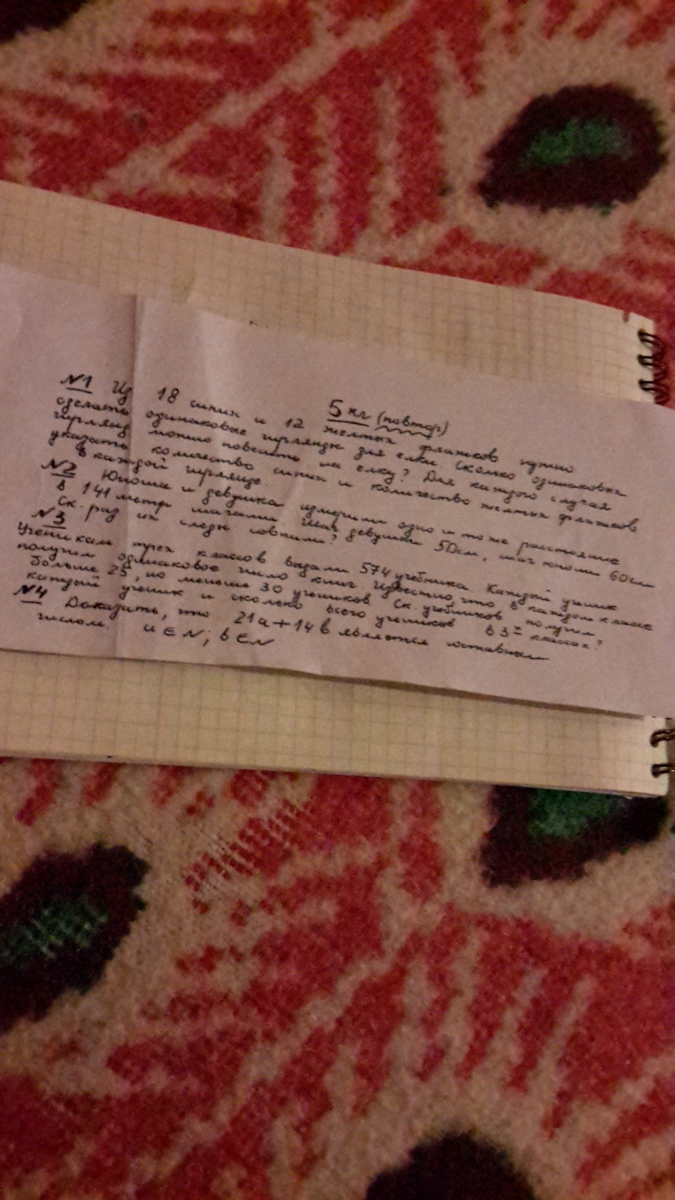 5 кл (повтор)
№1 Из 18 синих и 12 желтых флажков нужно
сделать одинаковые гирлянды для елки. Сколько одинаковых
гирлянд можно повесить на елку? Для каждого случая
указать количество синих и количество желтых флажков
в каждой гирлянде.
№2 Юноша и девушка измерили одно и то же расстояние
в 141 метр шагами. Шаг девушки 50см, шаг юноши 60см
Ск. раз их следы совпали?
№3
Ученикам трех классов выдали 574 учебника. Каждый ученик
получил одинаковое число книг. Известно, что в каждом классе
больше 25, но меньше 30 учеников. Ск. учебников получил
каждый ученик и сколько всего учеников в 3х классах?
№4 Доказать, что 21a + 14b является составным
числом. a ∈ N; b ∈ N